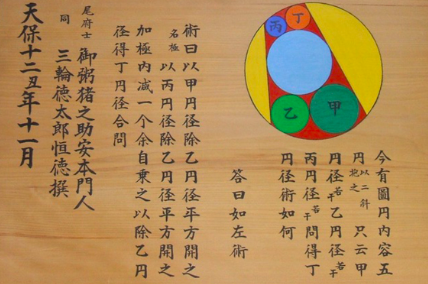 丙
丁
乙
甲
今有圖円内容五
円以二斜抱之只云甲
円径若干乙円径若干
丙円径若干問得丁
円径術如何
答曰如左術
術曰以甲円径除乙円径平方開之
名極以丙円径除乙円径平方開之
加極内减一个余自乗之以除乙円
径得丁円径合問
尾府士 御粥猪之助安本門人
同 三輪徳太郎恒徳撰
天保十二丑年十一月